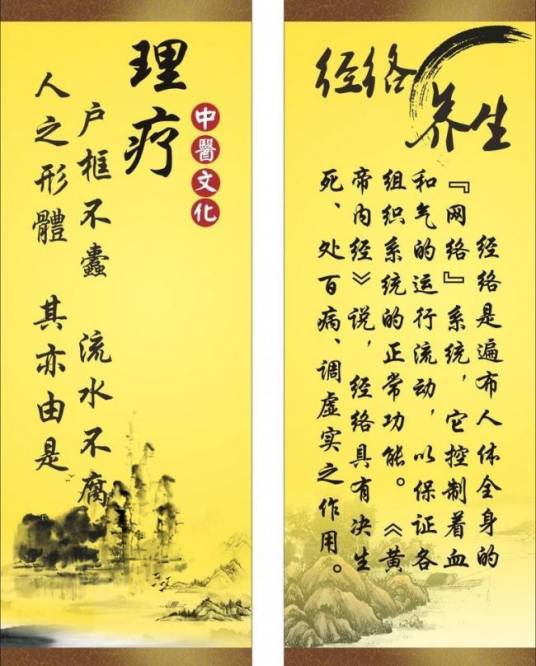 理疗
中醫文化
户框不蠹 流水不腐
人之形體 其亦由是
经络
养生
经络是遍布人体全身的
『网络』系统，它控制着血
和气的运行流动，以保证各
组织系统的正常功能。《黄
帝内经》说，经络具有决生
死、处百病、调虚实之作用。